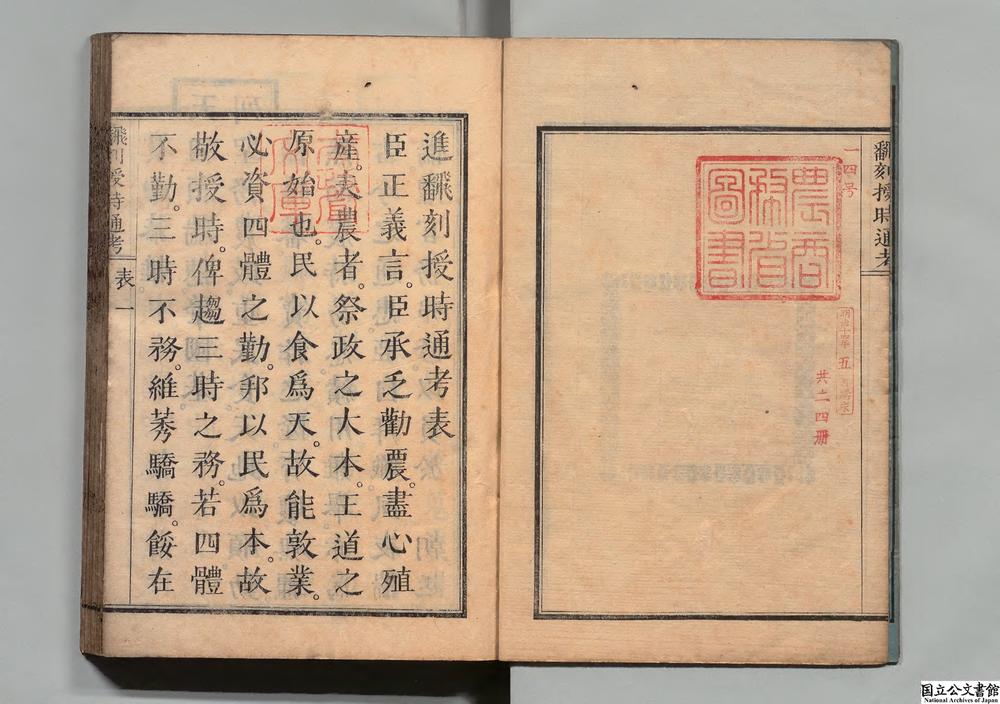 飜刻授時通考
一四号
農商務省圖書
明治十四年
五
共二四册
進飜刻授時通考表
臣正義言。臣承乏勸農。盡心殖
產。夫農者。祭政之大本。王道之
原始也。民以食爲天。故能敦業。
必資四體之勤。邦以民爲本。故
敬授時。俾趨三時之務。若四體
不勤。三時不務。維莠驕驕。餒在
飜刻授時通考
表
一
国立公文書館
National Archives of Japan